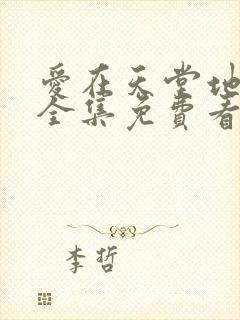 愛在天堂地
全集免費看
李哲